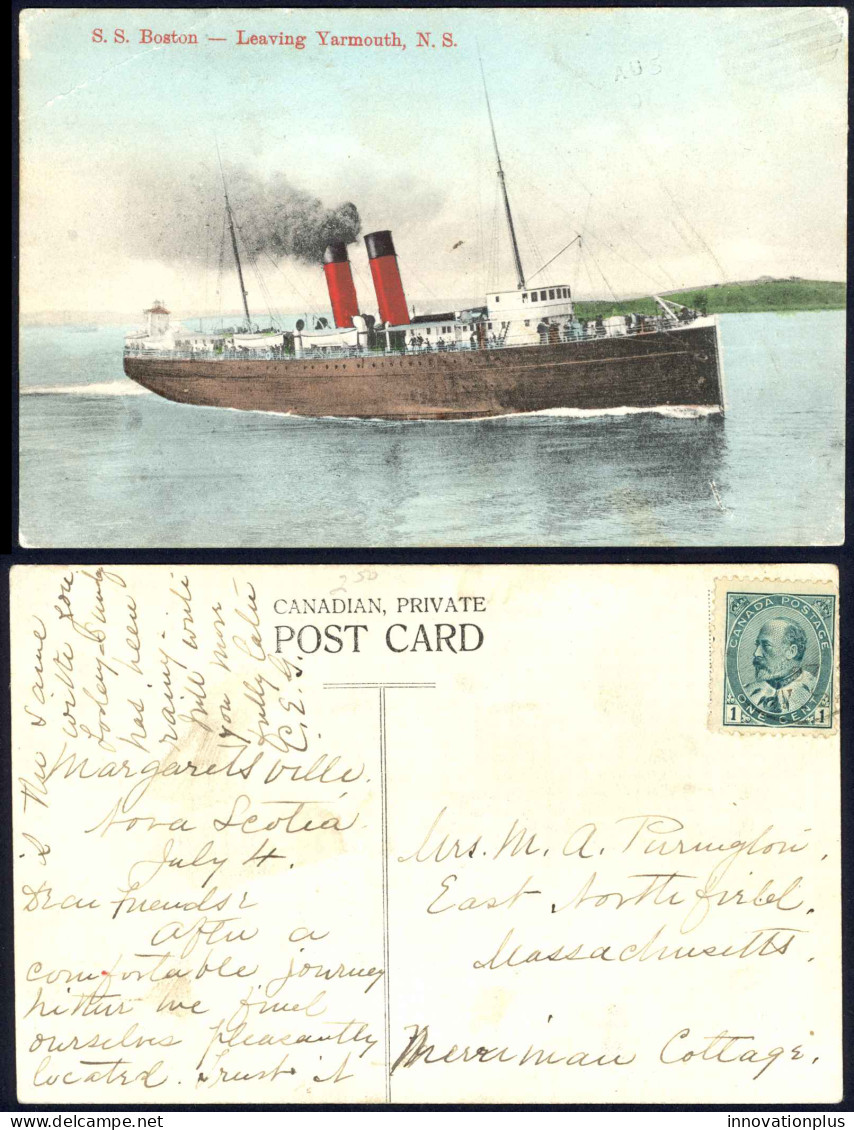 S. S. Boston — Leaving Yarmouth, N. S.
AUS
2 50
CANADIAN, PRIVATE
POST CARD
CANADA POSTAGE
1 ONE CENT 1
Margaretsville.
Nova Scotia.
July 4.
Dear Friends:
After a
comfortable journey
hither we find
ourselves pleasantly
located. Trust it
is the same
with you
to-day
has been
rainy-
Will write
you more
fully later
C. E. G.
Mrs. M. A. Purington,
East Northfield,
Massachusetts.
Merriman Cottage.
www.innovationplus